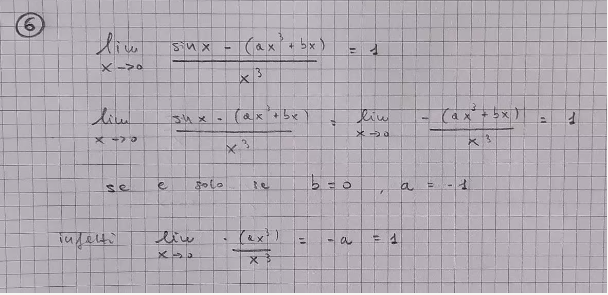 6
lim x->0 sin x - (ax³ + bx) / x³ = 1
lim x->0 sin x - (ax³ + bx) / x³ = lim x->0 - (ax³ + bx) / x³ = 1
se e solo se b = 0 , a = -1
infatti lim x->0 - (ax³) / x³ = -a = 1